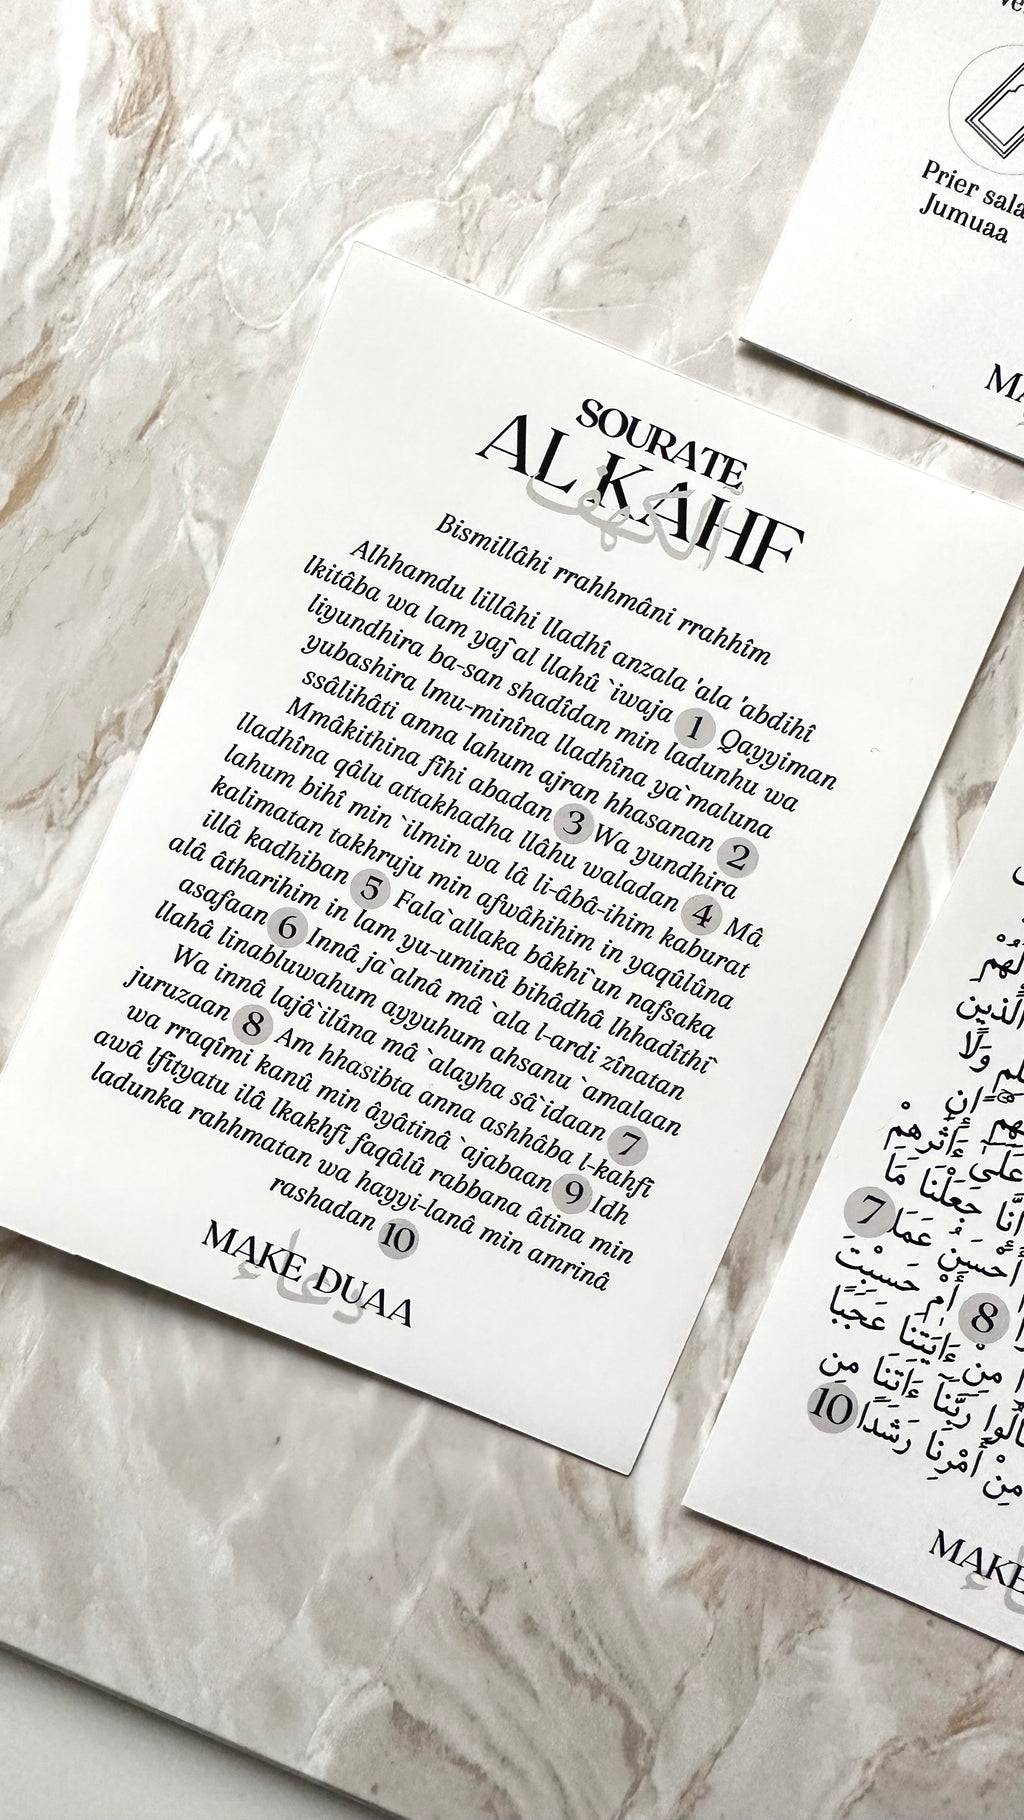 SOURATE
AL KAHF
الكهف
Bismillâhi rrahhmâni rrahhîm
Alhhamdu lillâhi lladhî anzala 'ala 'abdihî
lkitâba wa lam yaj`al llahû `iwaja 1 Qayyiman
liyundhira ba-san shadîdan min ladunhu wa
yubashira lmu-minîna lladhîna ya`maluna
ssâlihâti anna lahum ajran hhasanan 2
Mmâkithina fîhi abadan 3 Wa yundhira
lladhîna qâlu attakhadha llâhu waladan 4 Mâ
lahum bihî min `ilmin wa lâ li-âbâ-ihim kaburat
kalimatan takhruju min afwâhihim in yaqûlûna
illâ kadhiban 5 Fala`allaka bâkhi`un nafsaka
alâ âtharihim in lam yu-uminû bihâdhâ lhhadîthi
asafaan 6 Innâ ja`alnâ mâ `ala l-ardi zînatan
llahâ linabluwahum ayyuhum ahsanu `amalaan
Wa innâ lajâ`ilûna mâ `alayha sâ`idaan 7
juruzaan 8 Am hhasibta anna ashhâba l-kahfi
wa rraqîmi kanû min âyâtinâ `ajabaan 9 Idh
awâ lfityatu ilâ lkakhfi faqâlû rabbana âtina min
ladunka rahhmatan wa hayyi-lanâ min amrinâ
rashadan 10
MAKE DUAA
دعاء
Prier sala
Jumuaa
MA
لَهُمْ
ٱلَّذِينَ
وَلَا
إِن
عَلَىٰٓ ءَاثَٰرِهِمْ
إِنَّا جَعَلْنَا مَا
أَحْسَنُ عَمَلًا 7
8 أَمْ حَسِبْتَ
مِنْ ءَايَٰتِنَا عَجَبًا
رَبَّنَآ ءَاتِنَا مِن
مِنْ أَمْرِنَا رَشَدًا 10
MAKE